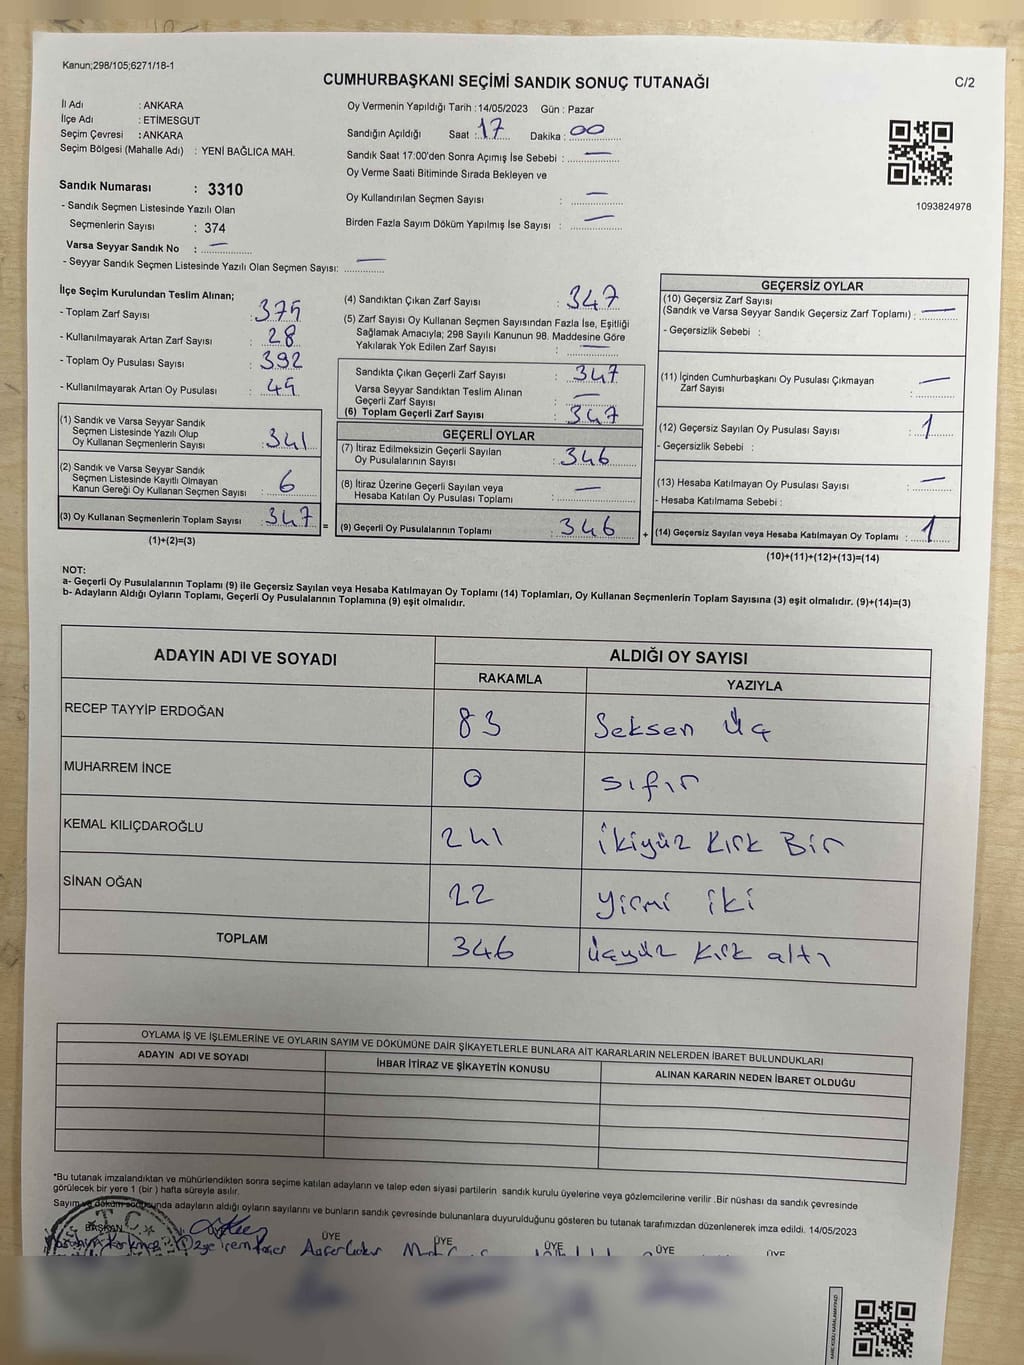 Kanun;298/105;6271/18-1
CUMHURBAŞKANI SEÇİMİ SANDIK SONUÇ TUTANAĞI
C/2
İl Adı : ANKARA
İlçe Adı : ETİMESGUT
Seçim Çevresi : ANKARA
Seçim Bölgesi (Mahalle Adı) : YENİ BAĞLICA MAH.
Oy Vermenin Yapıldığı Tarih : 14/05/2023 Gün : Pazar
Sandığın Açıldığı Saat : 17 Dakika : 00
Sandık Saat 17:00'den Sonra Açımış İse Sebebi : —
Oy Verme Saati Bitiminde Sırada Bekleyen ve
Oy Kullandırılan Seçmen Sayısı : —
Birden Fazla Sayım Döküm Yapılmış İse Sayısı : —
1093824978
Sandık Numarası : 3310
- Sandık Seçmen Listesinde Yazılı Olan
Seçmenlerin Sayısı : 374
Varsa Seyyar Sandık No : —
- Seyyar Sandık Seçmen Listesinde Yazılı Olan Seçmen Sayısı: —
İlçe Seçim Kurulundan Teslim Alınan;
- Toplam Zarf Sayısı : 375
- Kullanılmayarak Artan Zarf Sayısı : 28
- Toplam Oy Pusulası Sayısı : 392
- Kullanılmayarak Artan Oy Pusulası : 45
(1) Sandık ve Varsa Seyyar Sandık
Seçmen Listesinde Yazılı Olup
Oy Kullanan Seçmenlerin Sayısı : 341
(2) Sandık ve Varsa Seyyar Sandık
Seçmen Listesinde Kayıtlı Olmayan
Kanun Gereği Oy Kullanan Seçmen Sayısı : 6
(3) Oy Kullanan Seçmenlerin Toplam Sayısı : 347 =
(1)+(2)=(3)
(4) Sandıktan Çıkan Zarf Sayısı : 347
(5) Zarf Sayısı Oy Kullanan Seçmen Sayısından Fazla İse, Eşitliği
Sağlamak Amacıyla; 298 Sayılı Kanunun 98. Maddesine Göre
Yakılarak Yok Edilen Zarf Sayısı : —
Sandıkta Çıkan Geçerli Zarf Sayısı : 347
Varsa Seyyar Sandıktan Teslim Alınan
Geçerli Zarf Sayısı : —
(6) Toplam Geçerli Zarf Sayısı : 347
GEÇERLİ OYLAR
(7) İtiraz Edilmeksizin Geçerli Sayılan
Oy Pusulalarının Sayısı : 346
(8) İtiraz Üzerine Geçerli Sayılan veya
Hesaba Katılan Oy Pusulası Toplamı : —
(9) Geçerli Oy Pusulalarının Toplamı : 346 +
GEÇERSİZ OYLAR
(10) Geçersiz Zarf Sayısı
(Sandık ve Varsa Seyyar Sandık Geçersiz Zarf Toplamı) : —
- Geçersizlik Sebebi :
(11) İçinden Cumhurbaşkanı Oy Pusulası Çıkmayan
Zarf Sayısı : —
(12) Geçersiz Sayılan Oy Pusulası Sayısı : 1
- Geçersizlik Sebebi :
(13) Hesaba Katılmayan Oy Pusulası Sayısı : —
- Hesaba Katılmama Sebebi :
(14) Geçersiz Sayılan veya Hesaba Katılmayan Oy Toplamı : 1
(10)+(11)+(12)+(13)=(14)
NOT:
a- Geçerli Oy Pusulalarının Toplamı (9) ile Geçersiz Sayılan veya Hesaba Katılmayan Oy Toplamı (14) Toplamları, Oy Kullanan Seçmenlerin Toplam Sayısına (3) eşit olmalıdır. (9)+(14)=(3)
b- Adayların Aldığı Oyların Toplamı, Geçerli Oy Pusulalarının Toplamına (9) eşit olmalıdır.
ADAYIN ADI VE SOYADI
ALDIĞI OY SAYISI
RAKAMLA YAZIYLA
RECEP TAYYİP ERDOĞAN 83 Seksen Üç
MUHARREM İNCE 0 sıfır
KEMAL KILIÇDAROĞLU 241 ikiyüz Kırk Bir
SİNAN OĞAN 22 yirmi iki
TOPLAM 346 üçyüz Kırk altı
OYLAMA İŞ VE İŞLEMLERİNE VE OYLARIN SAYIM VE DÖKÜMÜNE DAİR ŞİKAYETLERLE BUNLARA AİT KARARLARIN NELERDEN İBARET BULUNDUKLARI
ADAYIN ADI VE SOYADI İHBAR İTİRAZ VE ŞİKAYETİN KONUSU ALINAN KARARIN NEDEN İBARET OLDUĞU
*Bu tutanak imzalandıktan ve mühürlendikten sonra seçime katılan adayların ve talep eden siyasi partilerin sandık kurulu üyelerine veya gözlemcilerine verilir .Bir nüshası da sandık çevresinde
görülecek bir yere 1 (bir ) hafta süreyle asılır.
Sayım ve döküm sonucunda adayların aldığı oyların sayılarını ve bunların sandık çevresinde bulunanlara duyurulduğunu gösteren bu tutanak tarafımızdan düzenlenerek imza edildi. 14/05/2023
T.C.
BAŞKAN ÜYE ÜYE ÜYE ÜYE ÜYE